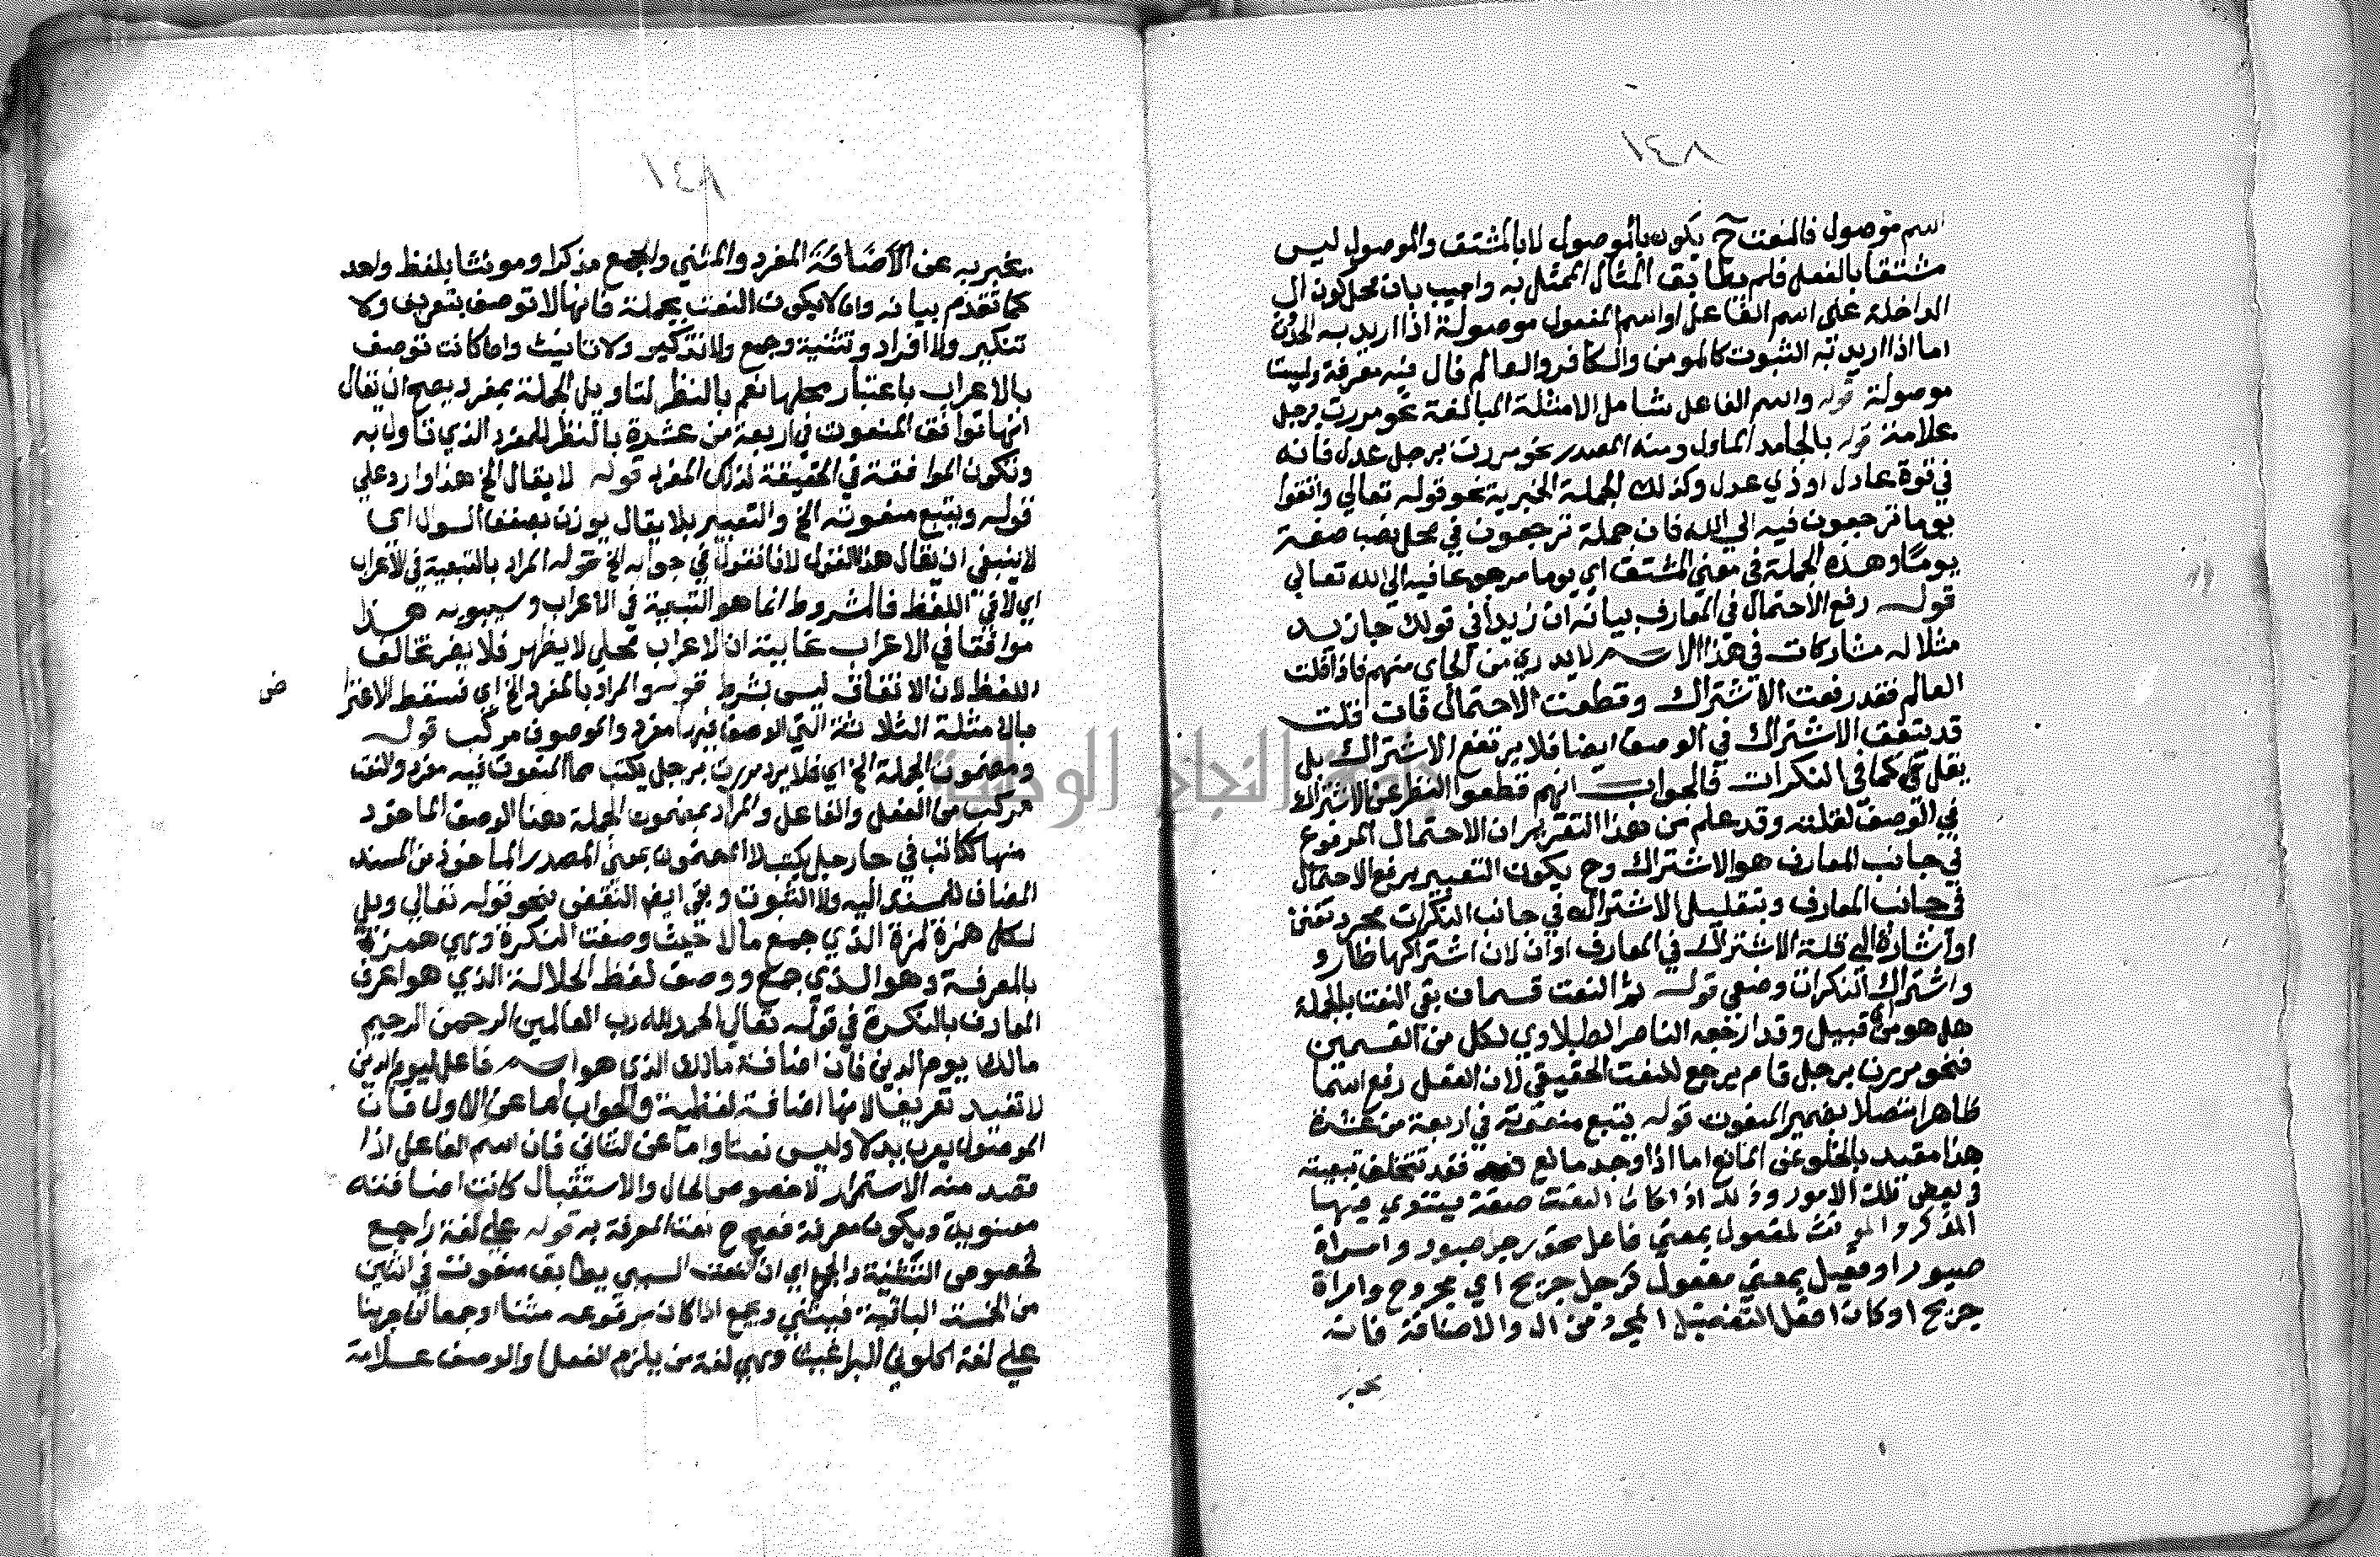 اسم موصول فالنعت ح يكون بالموصول لا بالمشتق والموصول ليس
مشتقا بالفعل فلم يطابق المثال الممثل به واجيب بان محل كون ال
الداخلة على اسم الفاعل او اسم المفعول موصولة اذا اريد به الحدوث
اما اذا اريد به الثبوت كالمومن والكافر والعالم فال فيه معرفة وليست
موصولة قوله واسم الفاعل شامل لامثلة المبالغة نحو مررت برجل
علامة قوله بالجامد الماول ومنه المصدر نحو مررت برجل عدل فانه
في قوة عادل او ذي عدل وكذلك الجملة الخبرية نحو قوله تعالي واتقوا
يوما ترجعون فيه الي الله فان جملة ترجعون في محل نصب صفة
يوما وهذه الجملة في معني المشتق اي يوما مرجوعا فيه الي الله تعالي
قوله رفع الاحتمال في المعارف بيانه ان زيدا في قولك جا زيد
مثلا له مشاركات في هذا الاسم لا يدري من الجاي منهم فاذا قلت
العالم فقد رفعت الاشتراك وقطعت الاحتمال فان قلت
قد يتفق الاشتراك في الوصف ايضا فلا يرتفع الاشتراك بل
يقل كما في النكرات فالجواب انهم قطعوا النظر عن الاشتراك
في الوصف لقلته وقد علم من هذا التقرير ان الاحتمال المرفوع
في جانب المعارف هو الاشتراك وح يكون التعبير برفع الاحتمال
في جانب المعارف وبتقليل الاشتراك في جانب النكرات مجرد تفنن
او اشارة الي قلة الاشتراك في المعارف او ان لان اشتراكها طارو
واشتراك النكرات وضعي قوله ثم النعت قسمان بقي النعت بالجملة
هل هو من قبيل وقد ارجعه الناصر الطبلاوي لكل من القسمين
فنحو مررت برجل قام يرجع للنعت الحقيقي لان الفعل رفع اسما
ظاهرا متصلا بضمير المنعوت قوله يتبع منعوته في اربعة من عشرة
هذا مقيد بالخلو عن المانع اما اذا وجد مانع فقد تتخلف تبعيته
في بعض تلك الامور وذلك اذا كان النعت صفة يستوي فيها
المذكر والمونث لمفعول بمعني فاعل نحو رجل صبور وامراة
صبور او فعيل بمعني مفعول كرجل جريح اي مجروح وامراة
جريح او كان افعل التفضيل المجرد من ال والاضافة فانه
يخبر
يخبر به عن الاضافة المفرد والمثني والجمع مذكرا ومونثا بلفظ واحد
كما تقدم بيانه وان لا يكون النعت بجملة فانها لا توصف بتعريف ولا
تنكير ولا افراد وتثنية وجمع ولا تذكير ولا تانيث وانما كانت توصف
بالاعراب باعتبار محلها نعم بالنظر لتاويل الجملة بمفرد يصح ان يقال
انها توافق المنعوت في اربعة من عشرة بالنظر للمفرد الذي تاول به
وتكون الموافقة في الحقيقة لذلك المفرد قوله لا يقال الخ هذا وارد علي
قوله ويتبع منعوته الخ والتعبير بلا يقال يوزن بضعف السوال اي
لا ينبغي ان يقال هذا القول لانا نقول في جوابه الخ قوله المراد بالتبعية في الاعراب
اي لا في اللفظ فالمشروط انما هو التبعية في الاعراب وسيبويه هذا
موافقا في الاعراب غايته ان الاعراب محلي لا يظهر فلا يضر تخالف
اللفظ لان الاتفاق ليس بشرط قوله والمراد بالمفرد الخ اي فسقط الاعترا
ض
بالامثلة الثلاثة التي الوصف فيها مفرد والموصوف مركب قوله
ومضمون الجملة الخ اي فلا يرد مررت برجل يكتب مما المنعوت فيه مفرد والنعت
مركب من الفعل والفاعل والمراد بمضمون الجملة هنا الوصف الماخوذ
منها ككاتب في جا رجل يكتب لا المضمون بمعني المصدر الماخوذ من المسند
المضاف للمسند اليه ولا الثبوت وبقي ايض النقض بنحو قوله تعالي ويل
لكل همزة لمزة الذي جمع مالا حيث وصفت النكرة وهي همزة
بالمعرفة وهو الذي جمع ووصف لفظ الجلالة الذي هو اعرف
المعارف بالنكرة في قوله تعالي الحمد لله رب العالمين الرحمن الرحيم
مالك يوم الدين فان اضافة مالك الذي هو اسم فاعل ليوم الدين
لا تفيد تعريفا لانها اضافة لفظية والجواب اما عن الاول فان
الموصول يعرب بدلا وليس نعتا واما عن الثاني فان اسم الفاعل اذا
قصد منه الاستمرار لا خصوص الحال والاستقبال كانت اضافته
معنوية ويكون معرفة فصح ح نعت المعرفة به قوله علي لغة راجع
لخصوص التثنية والجمع اي ان النعت السببي يطابق منعوته في اثنين
من الخمسة الباقية فيثني ويجمع اذا كان مرفوعه مثنا او جمعا جريا
علي لغة اكلوني البراغيث وهي لغة من يلزم الفعل والوصف علامة